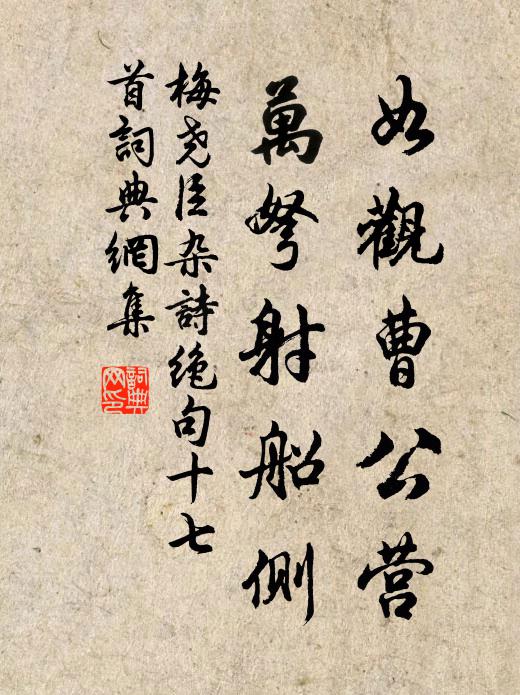 如觀曹公营
萬弩射船側
梅尧臣杂詩绝句十七
首詞典網集
詞典
网印